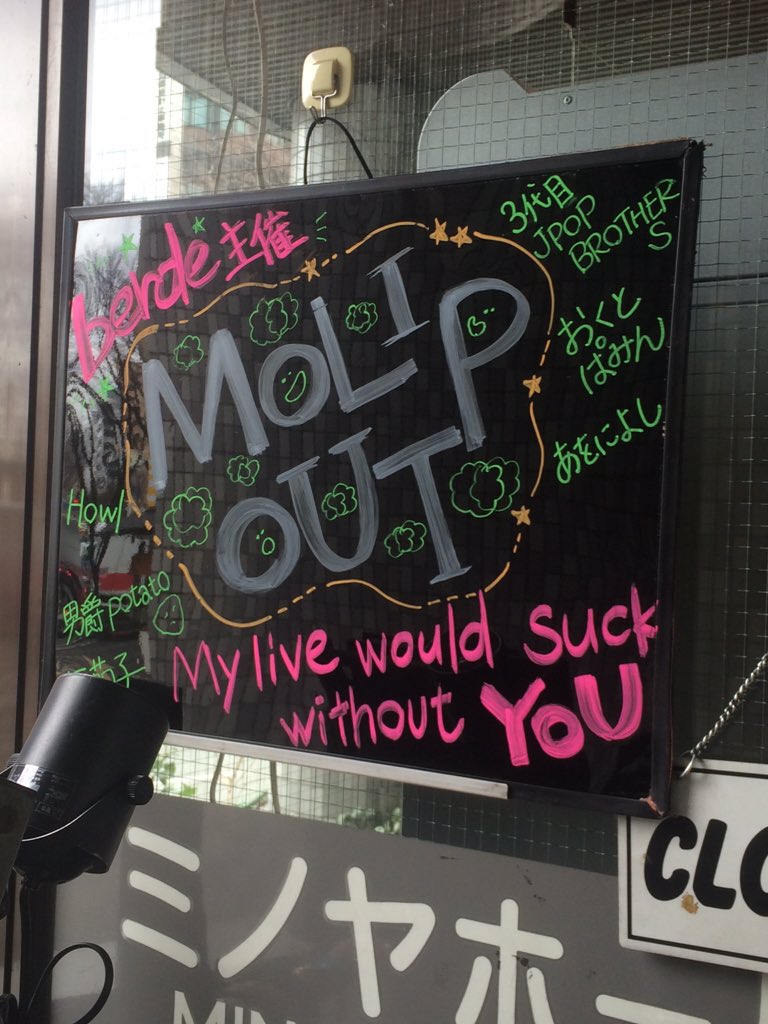 berde 主催
MOLIP
OUT
3代目
JPOP
BROTHER
S
おくと
ぱみん
あをによし
Howl
男爵 potato
My live would suck
without YOU
CLO
ミノヤホー
MIN